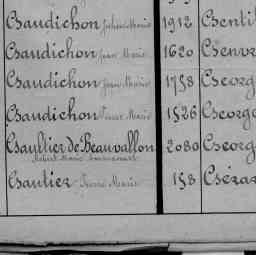 Gaudichon Julien Marie 1912 Gentil
Gaudichon Jean Marie 1620
Gaudichon Jean Marie 1758 Georg
Gaudichon Pierre Marie 1526 George
Gaultier de Beauvallon 2080 Georg
Marie
Gautier Pierre Marie 158 Gérar